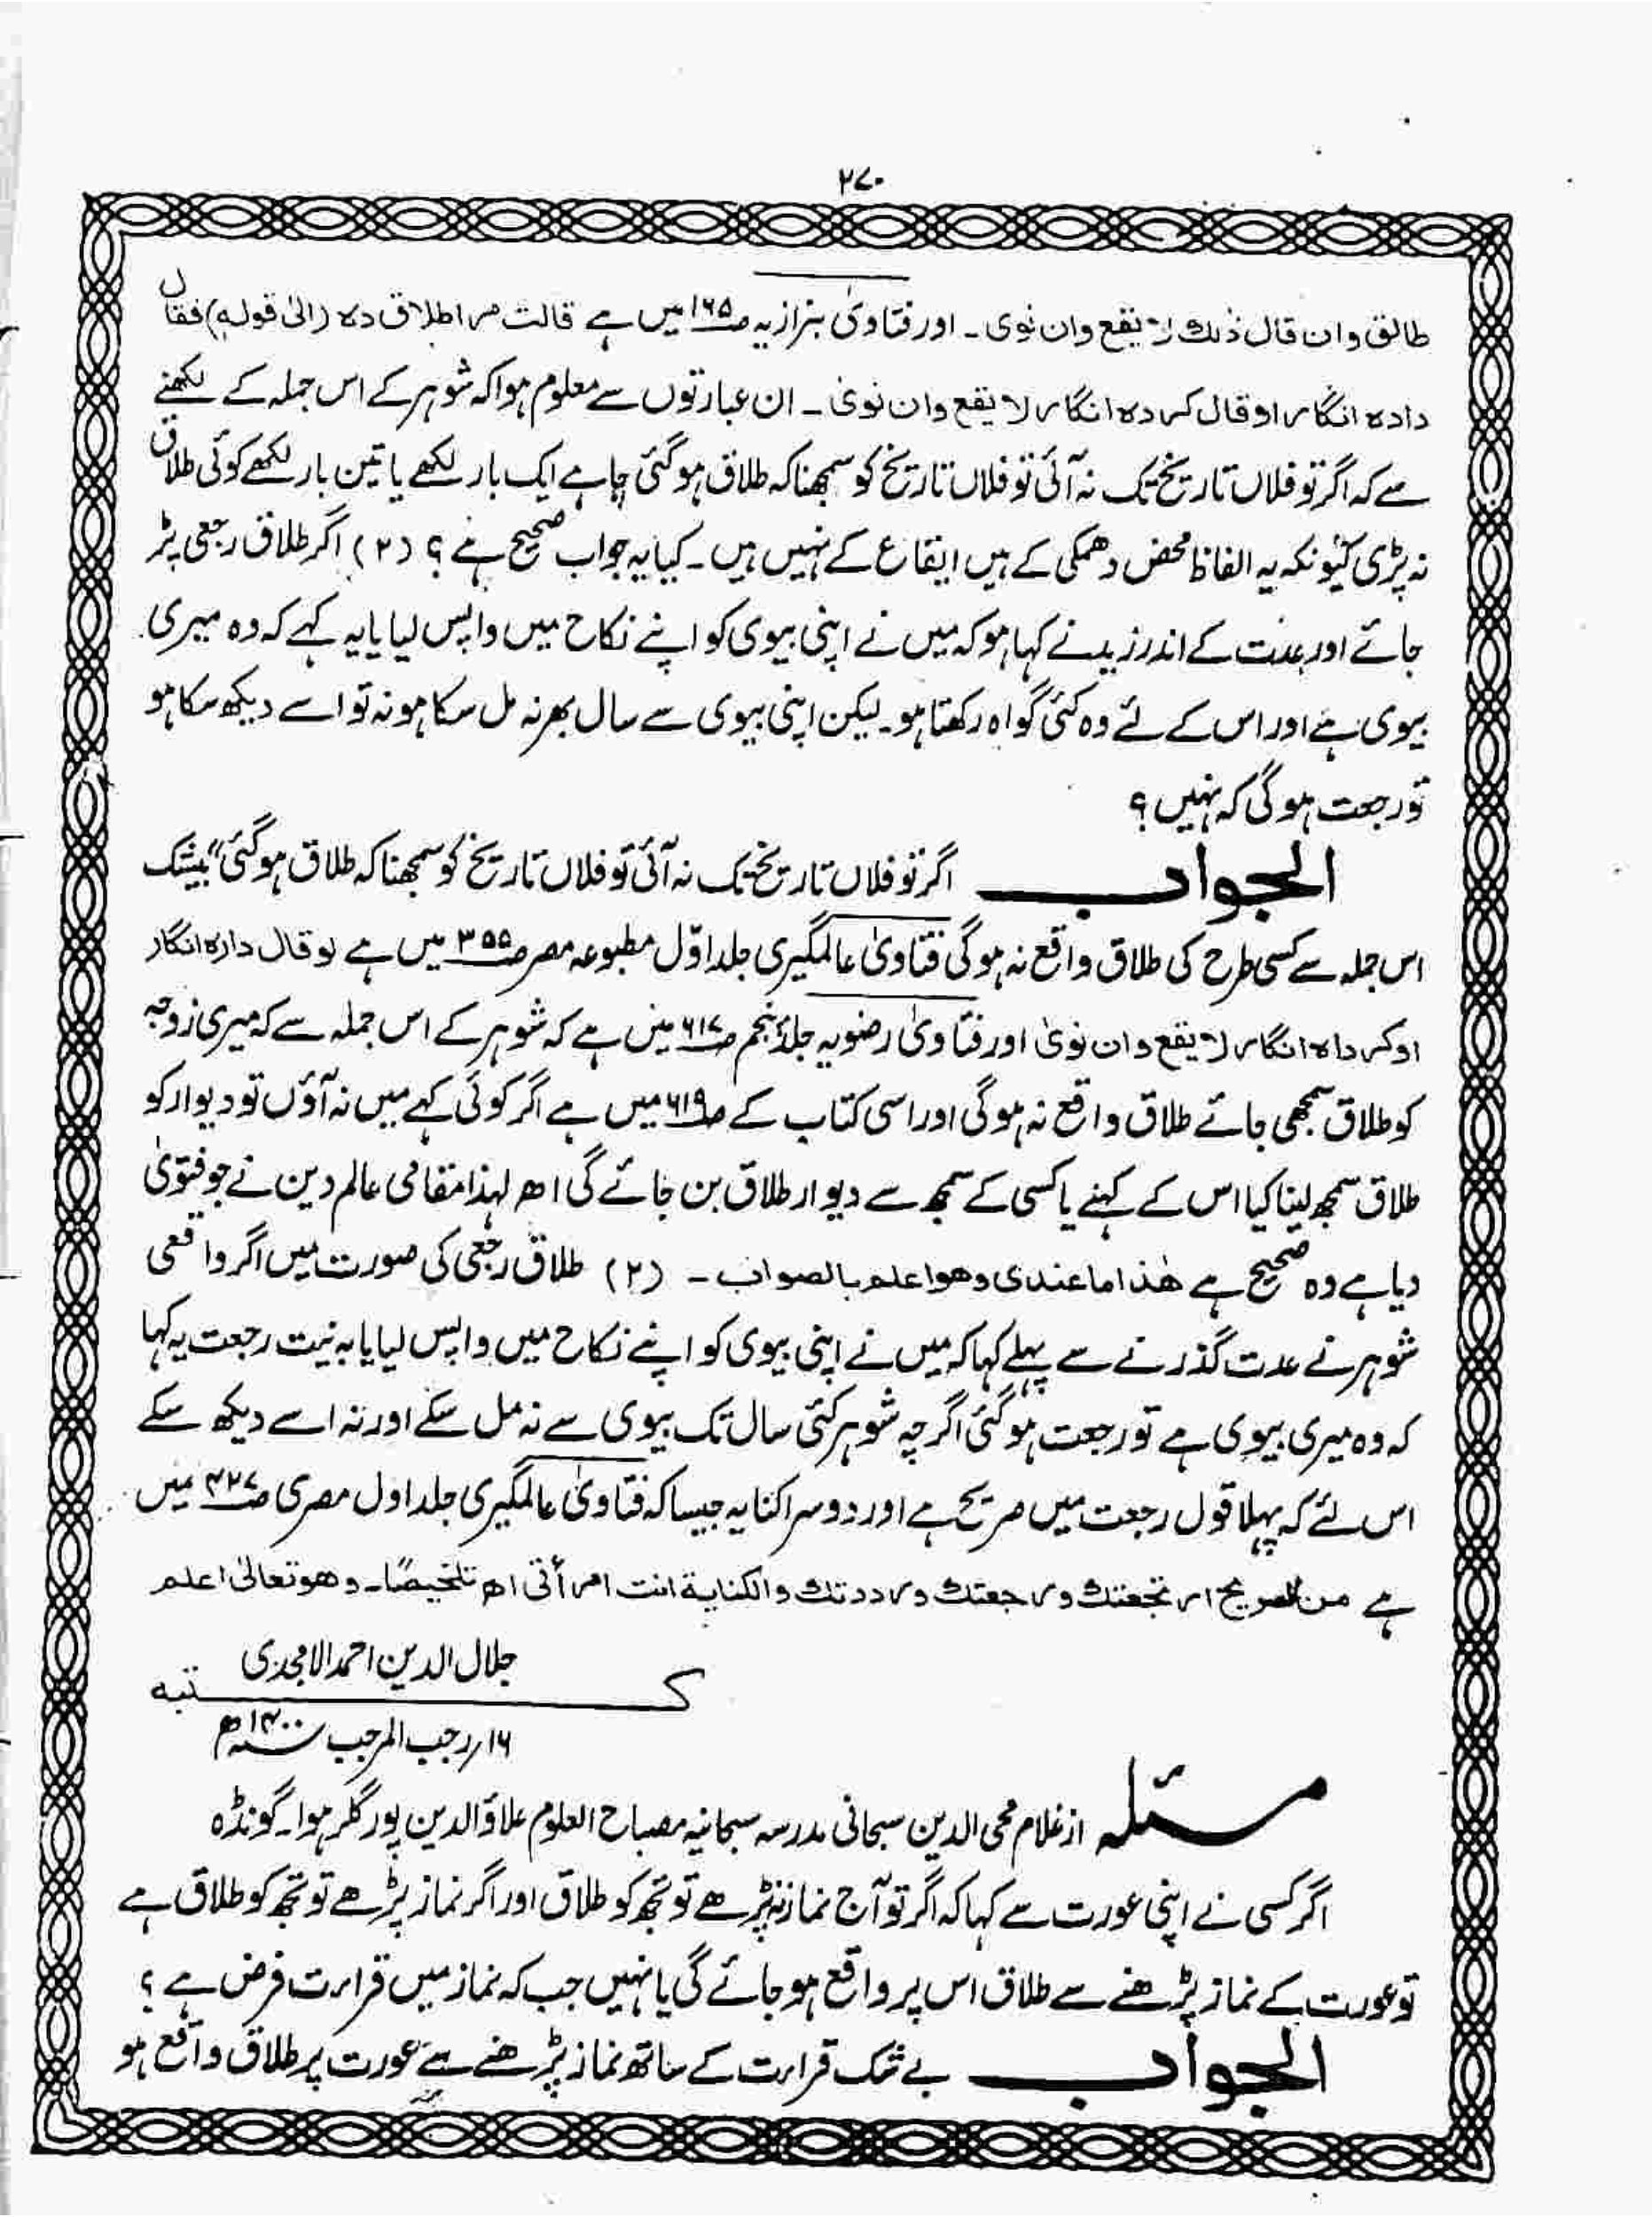 ۲۷۰
طالق وان قال ذلك لا يقع وان نوى ۔ اور فتاویٰ بزازیہ ص۱۶۵ میں ہے قالت مرا طلاق ده (الیٰ قولہ) فقال
داده انگار او قال کرده انگار لا يقع وان نوىٰ ۔ ان عبارتوں سے معلوم ہوا کہ شوہر کے اس جملہ کے لکھنے
سے کہ اگر تو فلاں تاریخ تک نہ آئی تو فلاں تاریخ کو سمجھنا کہ طلاق ہوگئی چاہے ایک بار لکھے یا تین بار لکھے کوئی طلاق
نہ پڑی کیونکہ یہ الفاظ محض دھمکی کے ہیں ایقاع کے نہیں ہیں ۔ کیا یہ جواب صحیح ہے ؟ (۲) اگر طلاق رجعی پڑ
جائے اور عدت کے اندر زید نے کہا ہو کہ میں نے اپنی بیوی کو اپنے نکاح میں واپس لیا یا یہ کہے کہ وہ میری
بیوی ہے اور اس کے لئے وہ کئی گواہ رکھتا ہو ۔ لیکن اپنی بیوی سے سال بھر نہ مل سکا ہو نہ تو اسے دیکھ سکا ہو
تو رجعت ہوگی کہ نہیں ؟
الجواب اگر تو فلاں تاریخ تک نہ آئی تو فلاں تاریخ کو سمجھنا کہ طلاق ہوگئی“ بیشک
اس جملہ سے کسی طرح کی طلاق واقع نہ ہوگی فتاویٰ عالمگیری جلد اوّل مطبوعہ مصر ص۳۵۵ میں ہے لو قال داره انگار
او کرداه انگار لا يقع وان نوىٰ اور فتاویٰ رضویہ جلد پنجم ص۶۱۷ میں ہے کہ شوہر کے اس جملہ سے کہ میری زوجہ
کو طلاق سمجھی جائے طلاق واقع نہ ہوگی اور اسی کتاب کے ص۶۱۹ میں ہے اگر کوئی کہے میں نہ آؤں تو دیوار کو
طلاق سمجھ لینا کیا اس کے کہنے یا کسی کے سمجھ سے دیوار طلاق بن جائے گی اھ لہذا مقامی عالم دین نے جو فتویٰ
دیا ہے وہ صحیح ہے هٰذا ما عندى وهو اعلم بالصواب ۔ (۲) طلاق رجعی کی صورت میں اگر واقعی
شوہر نے عدت گذرنے سے پہلے کہا کہ میں نے اپنی بیوی کو اپنے نکاح میں واپس لیا یا بہ نیت رجعت یہ کہا
کہ وہ میری بیوی ہے تو رجعت ہوگئی اگرچہ شوہر کئی سال تک بیوی سے نہ مل سکے اور نہ اسے دیکھ سکے
اس لئے کہ پہلا قول رجعت میں صریح ہے اور دوسرا کنایہ جیسا کہ فتاویٰ عالمگیری جلد اول مصری ص۴۲۷ میں
ہے من الصريح ارتجعتك وراجعتك ورددتك والكناية انت امرأتى اھ تلخيصًا ۔ وهو تعالىٰ اعلم
جلال الدین احمد الامجدی
کتبہ
۱۶؍ رجب المرجب سنہ ۱۴۰۰ھ
مسئلہ از غلام محی الدین سبحانی مدرسہ سبحانیہ مصباح العلوم علاؤالدین پور گلرہوا ۔ گونڈہ
اگر کسی نے اپنی عورت سے کہا کہ اگر تو آج نماز نہ پڑھے تو تجھ کو طلاق اور اگر نماز پڑھے تو تجھ کو طلاق ہے
تو عورت کے نماز پڑھنے سے طلاق اس پر واقع ہو جائے گی یا نہیں جب کہ نماز میں قرارت فرض ہے ؟
الجواب بے شک قرارت کے ساتھ نماز پڑھنے سے عورت پر طلاق واقع ہو